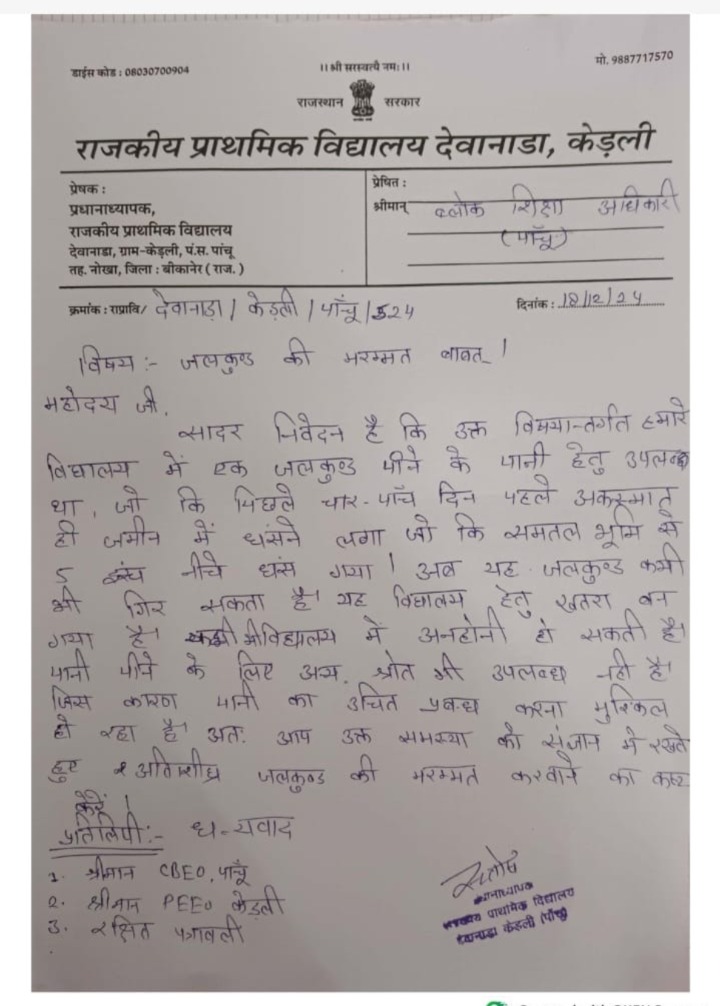 डाईस कोड : 08030700904
।। श्री सरस्वत्यै नमः ।।
मो. 9887717570
राजस्थान सरकार
राजकीय प्राथमिक विद्यालय देवानाडा, केड़ली
प्रेषक :
प्रधानाध्यापक,
राजकीय प्राथमिक विद्यालय
देवानाडा, ग्राम-केड़ली, पं.स. पांचू
तह. नोखा, जिला : बीकानेर ( राज. )
प्रेषित :
श्रीमान् ब्लोक शिक्षा अधिकारी
(पाँचू)
क्रमांक : राप्रावि/ देवानाड़ा / केड़ली / पाँचू / 524
दिनांक : 18/12/24
विषय :- जलकुण्ड की मरम्मत बाबत् ।
महोदय जी,
सादर निवेदन है कि उक्त विषयान्तर्गत हमारे
विद्यालय में एक जलकुण्ड पीने के पानी हेतु उपलब्ध
था, जो कि पिछले चार-पाँच दिन पहले अकस्मात्
ही जमीन में धंसने लगा जो कि समतल भूमि से
5 इंच नीचे धंस गया । अब यह जलकुण्ड कभी
भी गिर सकता है। यह विद्यालय हेतु खतरा बन
गया है। कभी भी विद्यालय में अनहोनी हो सकती है।
पानी पीने के लिए अन्य श्रोत भी उपलब्ध नही है।
जिस कारण पानी का उचित प्रबन्ध करना मुश्किल
हो रहा है। अतः आप उक्त समस्या को संज्ञान मे रखते
हुए अतिशीघ्र जलकुण्ड की मरम्मत करवाने का कष्ट
करें ।
प्रतिलिपी :- धन्यवाद
1. श्रीमान CBEO, पाँचू
2. श्रीमान PEEO केड़ली
3. रक्षित पत्रावली
प्रधानाध्यापक
राजकीय प्राथमिक विद्यालय
देवानाडा केडली (पाँचू)